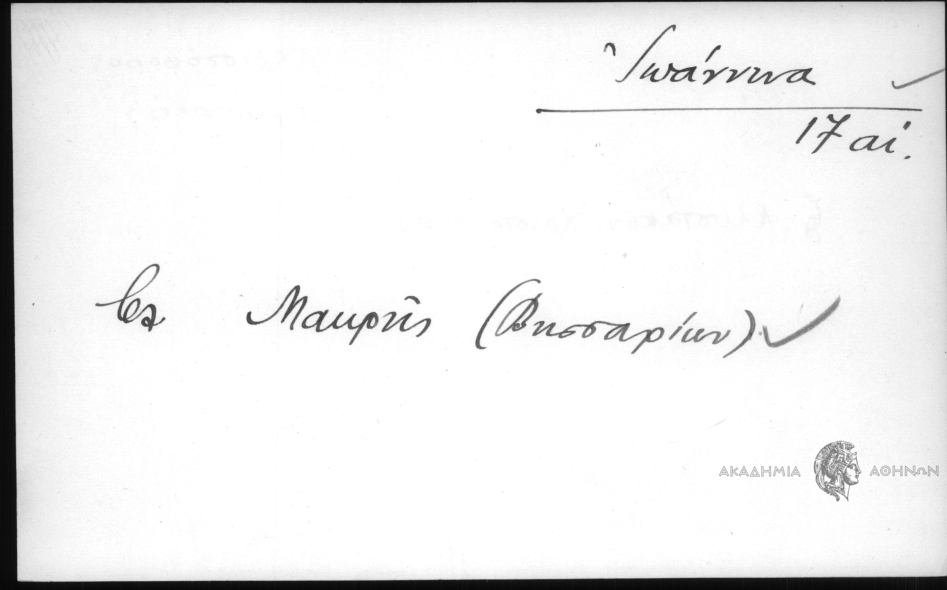 Ἰωάννινα
17 αἰ.
Βλ Μακρῆς (Βησσαρίων)
ΑΚΑΔΗΜΙΑ ΑΘΗΝΩΝ